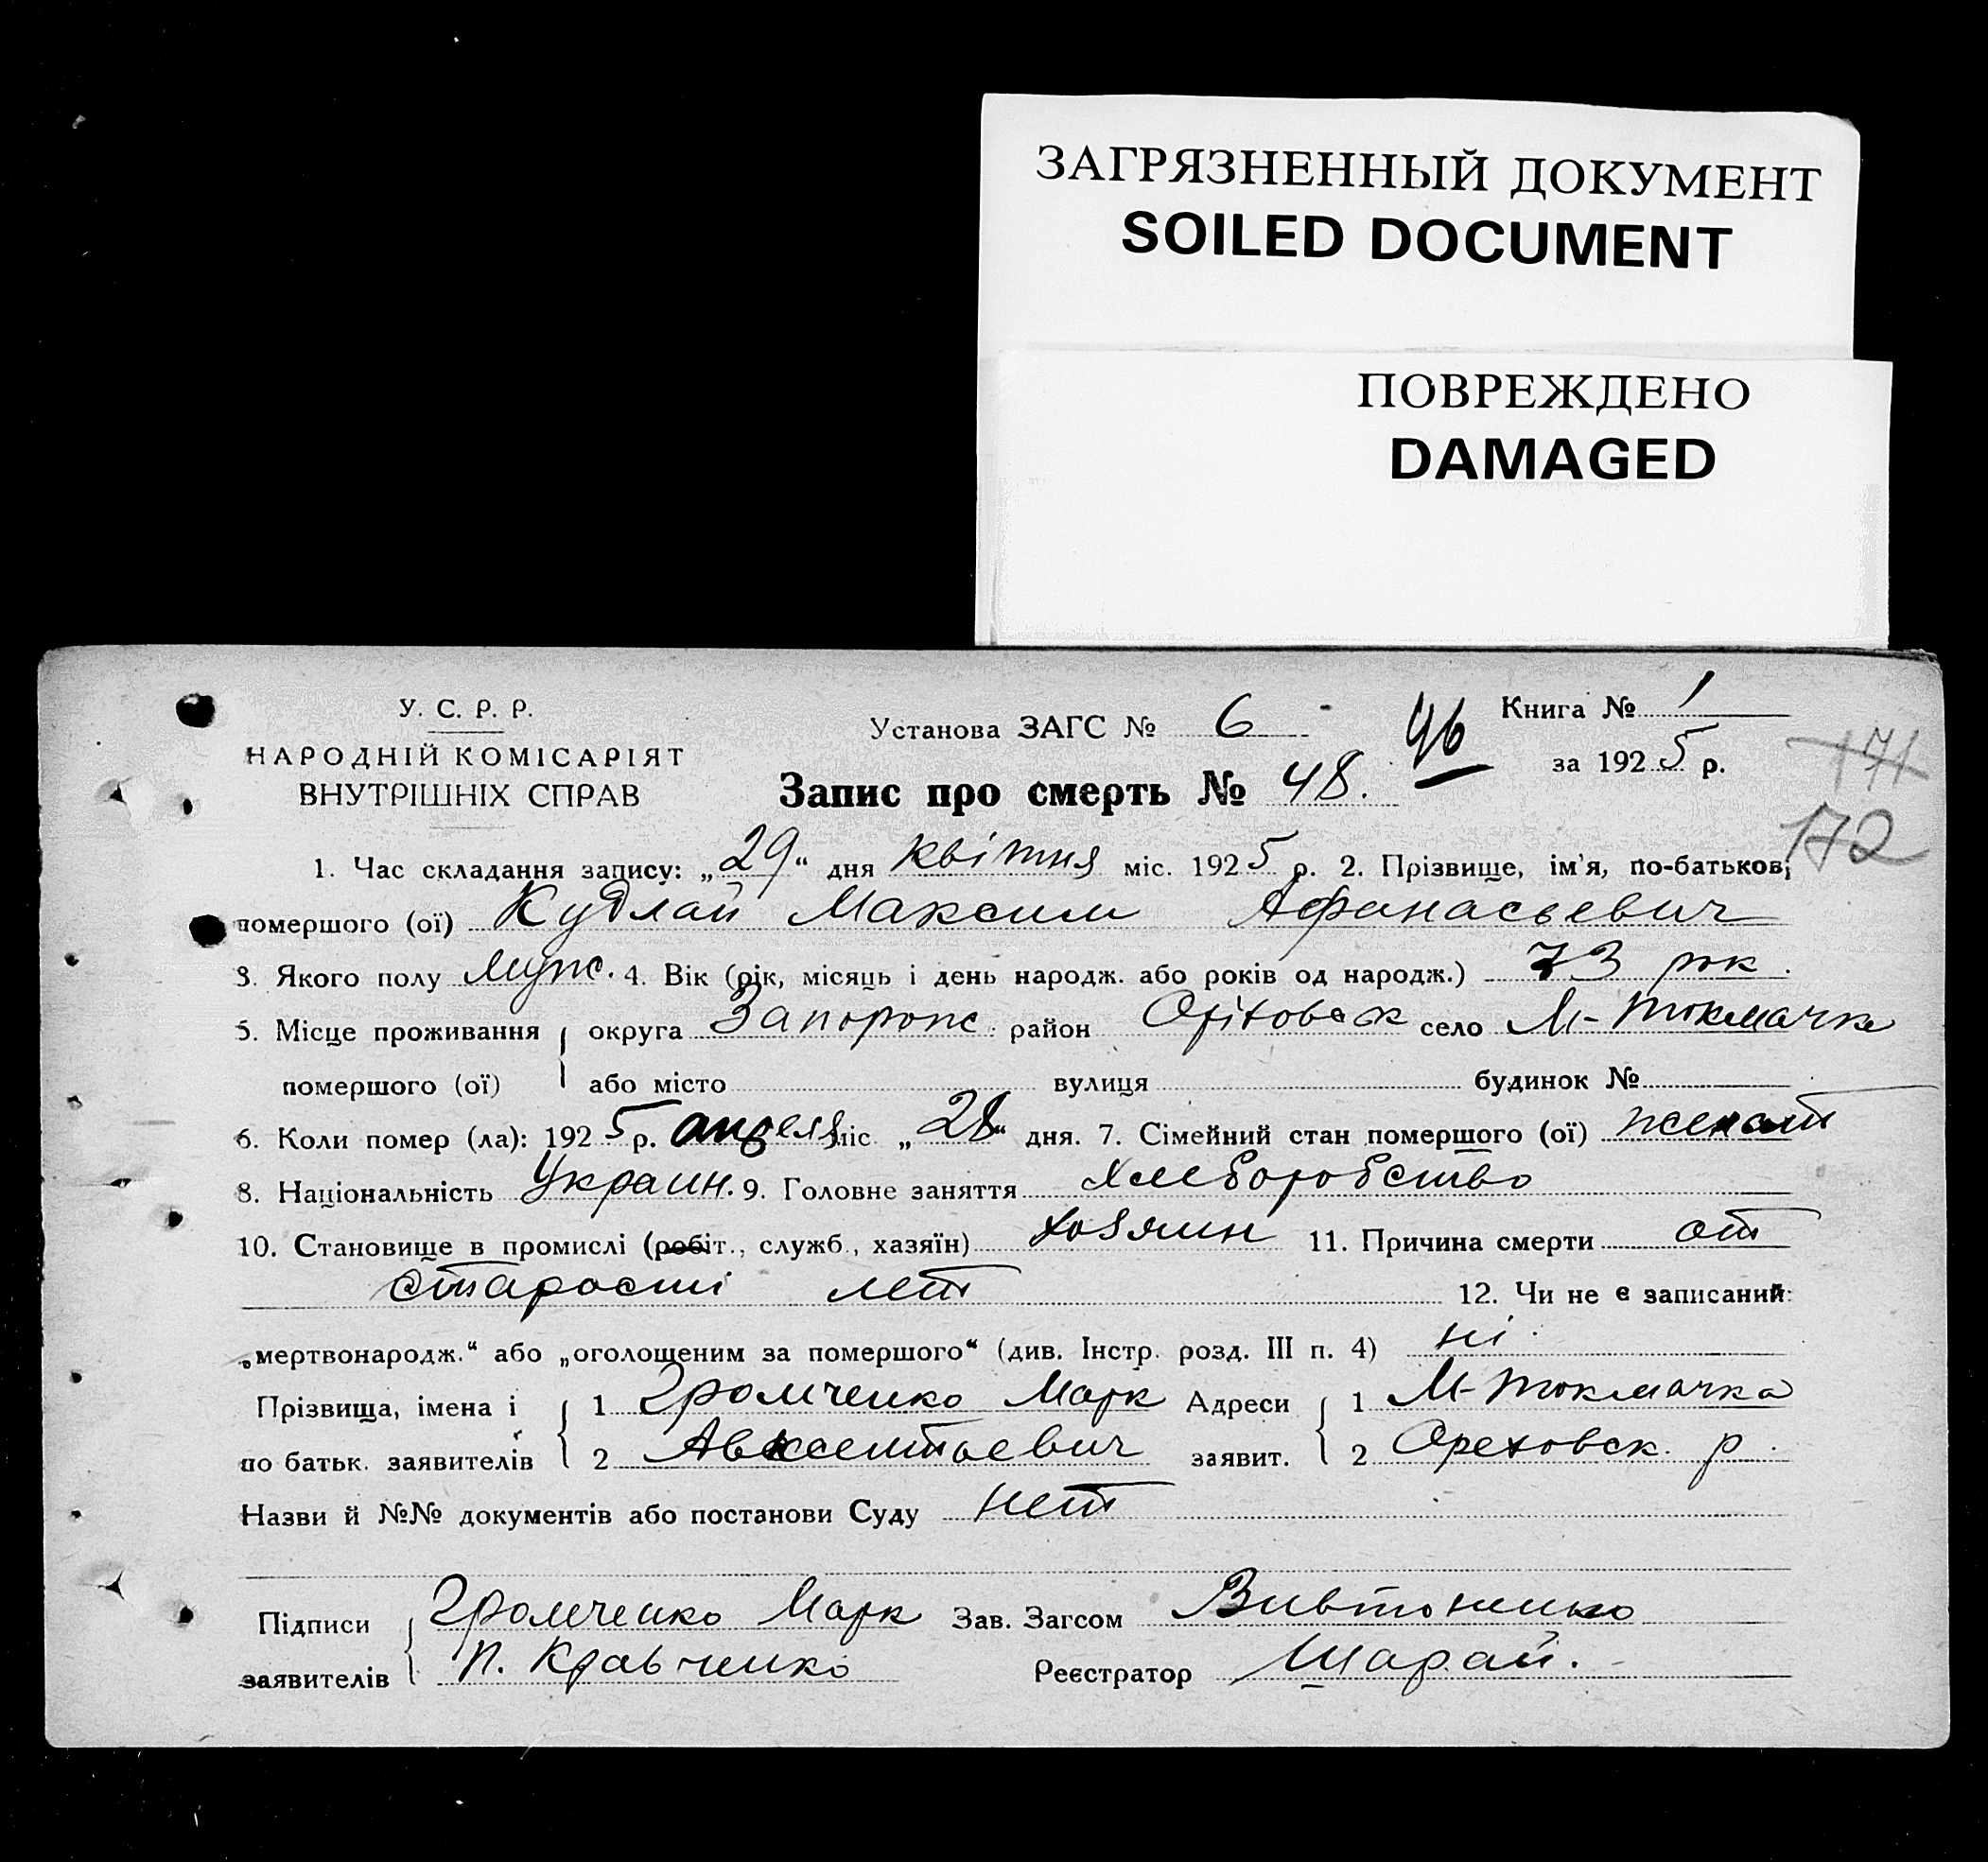 ЗАГРЯЗНЕННЫЙ ДОКУМЕНТ
SOILED DOCUMENT
ПОВРЕЖДЕНО
DAMAGED
У. С. Р. Р.
НАРОДНІЙ КОМІСАРІЯТ
ВНУТРІШНІХ СПРАВ
Установа ЗАГС № 6
46
Книга № 1
за 1925 р.
Запис про смерть № 48.
171
172
1. Час складання запису: „29“ дня квітня міс. 1925 р. 2. Прізвище, ім'я, по-батькові
помершого (ої) Кудлай Максим Афанасьевич
3. Якого полу Мужс. 4. Вік (рік, місяць і день народж. або років од народж.) 73 рок.
5. Місце проживання округа Запорожс. район Оріховск село М-Токмачка
помершого (ої) або місто вулиця будинок №
6. Коли помер (ла): 1925 р. апреля міс „28“ дня. 7. Сімейний стан помершого (ої) женат
8. Національність Украин. 9. Головне заняття Хлеборобство
10. Становище в промислі (робіт., служб., хазяїн) хозяин 11. Причина смерти от
старости лет 12. Чи не є записаний:
„мертвонародж.“ або „оголошеним за помершого“ (див. Інстр. розд. III п. 4) ні.
Прізвища, імена і 1 Громченко Марк Адреси 1 М-Токмачка
по батьк. заявителів 2 Авксентьевич заявит. 2 Ореховск. р.
Назви й №№ документів або постанови Суду нет
Підписи Громченко Марк Зав. Загсом Вивтоненко
заявителів П. Кравченко Реєстратор Шарай.